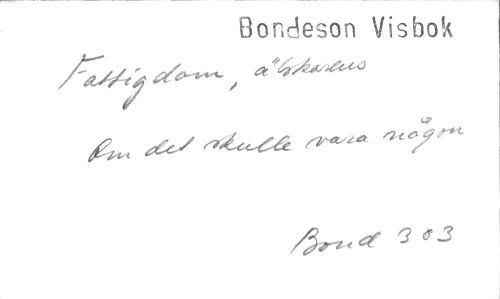 Bondeson Visbok
Fattigdom, älskarens
Om det skulle vara någon
Bond 303